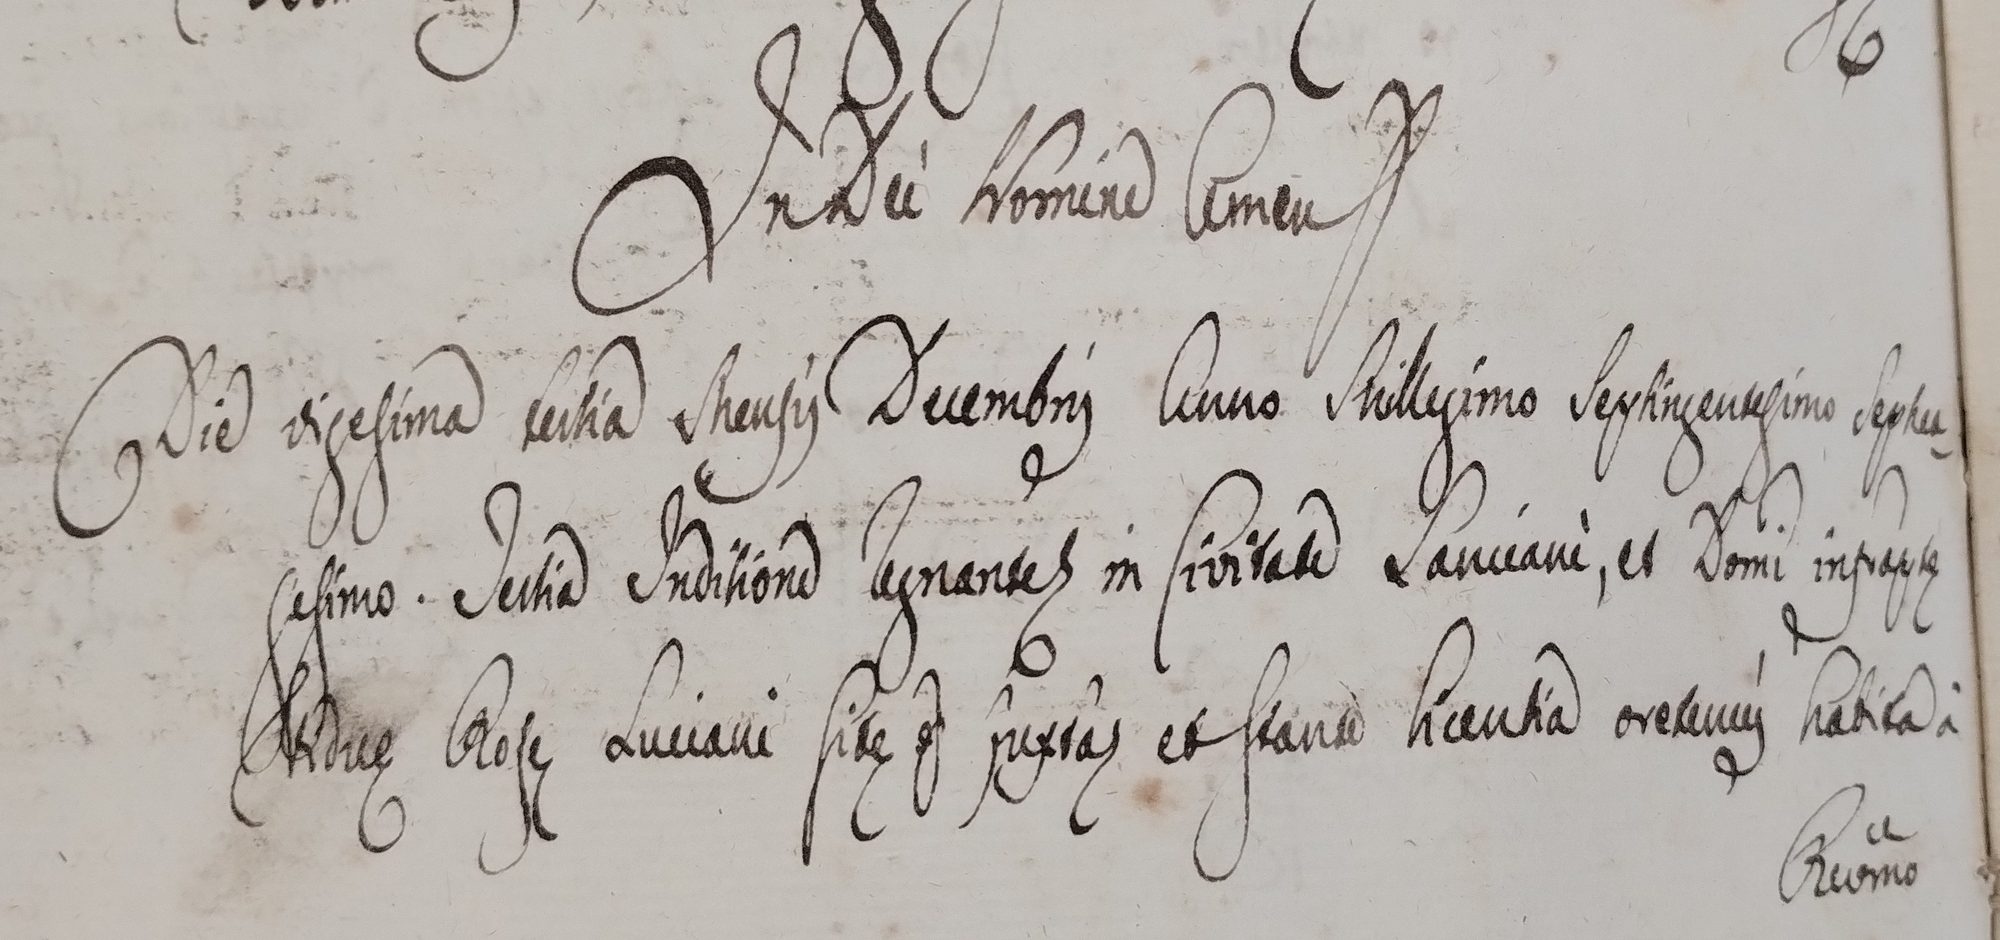 In Dei Nomine Amen
Die vigesima tertia Mensis Decembris Anno Millesimo Septingentesimo Septua=
gesimo. Tertia Inditione Regnante in Civitate Lanciani, et Domi infrapte
Viduę Rosę Luciani sitę juxta et stante licentia oretenus habita à
Revmo